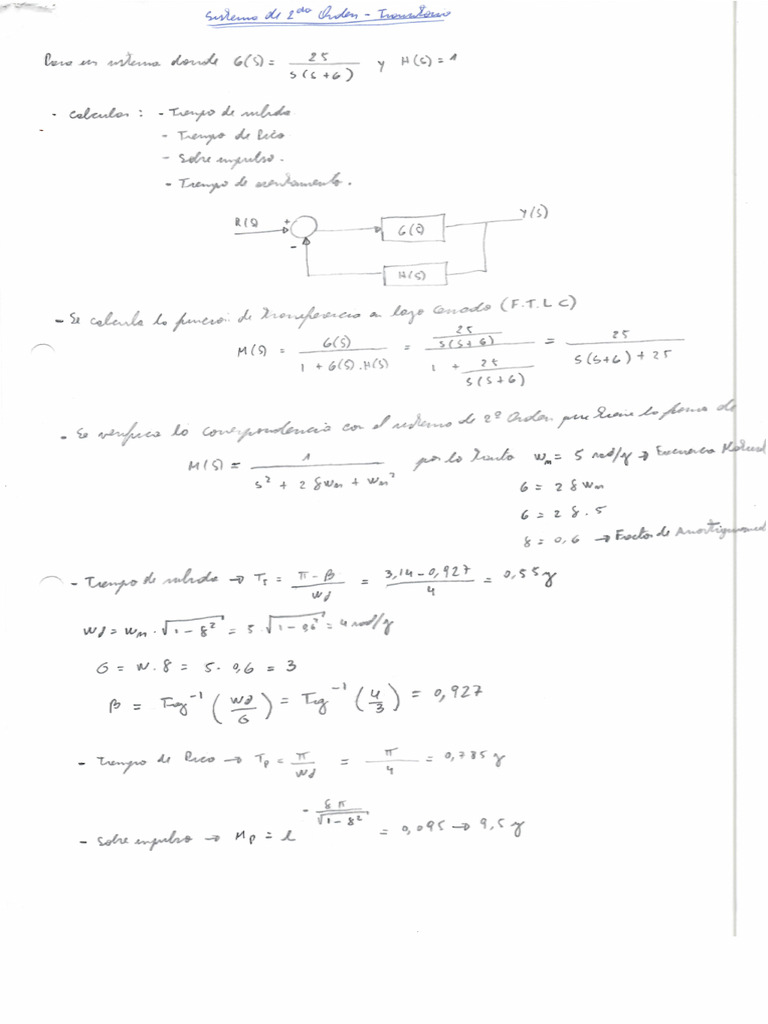 Sistema de 2do Orden - Transitorio
Para un sistema donde G(S) = 25 / S(S+6) y H(S) = 1
- Calcular : - Tiempo de subida
- Tiempo de Pico
- Sobre impulso.
- Tiempo de asentamiento.
R(S) + - G(S) Y(S)
H(S)
- Se calcula la función de Transferencia a lazo Cerrado (F.T.L.C)
M(S) = G(S) / 1 + G(S).H(S) = 25 / S(S+6) / 1 + 25 / S(S+6) = 25 / S(S+6) + 25
- Se verifica la correspondencia con el sistema de 2º Orden que tiene la forma de
M(S) = 1 / S² + 2 δ Wn + Wn² por lo tanto Wn = 5 rad/s → Frecuencia Natural
6 = 2 δ Wn
6 = 2 δ . 5
δ = 0,6 → Factor de
- Tiempo de subida → Ts = π - β / Wd = 3,14 - 0,927 / 4 = 0,55 s
Wd = Wn . √1 - δ² = 5 . √1 - 0,6² = 4 rad/s
σ = W . δ = 5 . 0,6 = 3
β = Tag⁻¹ (Wd / σ) = Tag⁻¹ (4 / 3) = 0,927
- Tiempo de Pico → Tp = π / Wd = π / 4 = 0,785 s
- Sobre impulso → Mp = e - δ π / √1 - δ² = 0,095 → 9,5